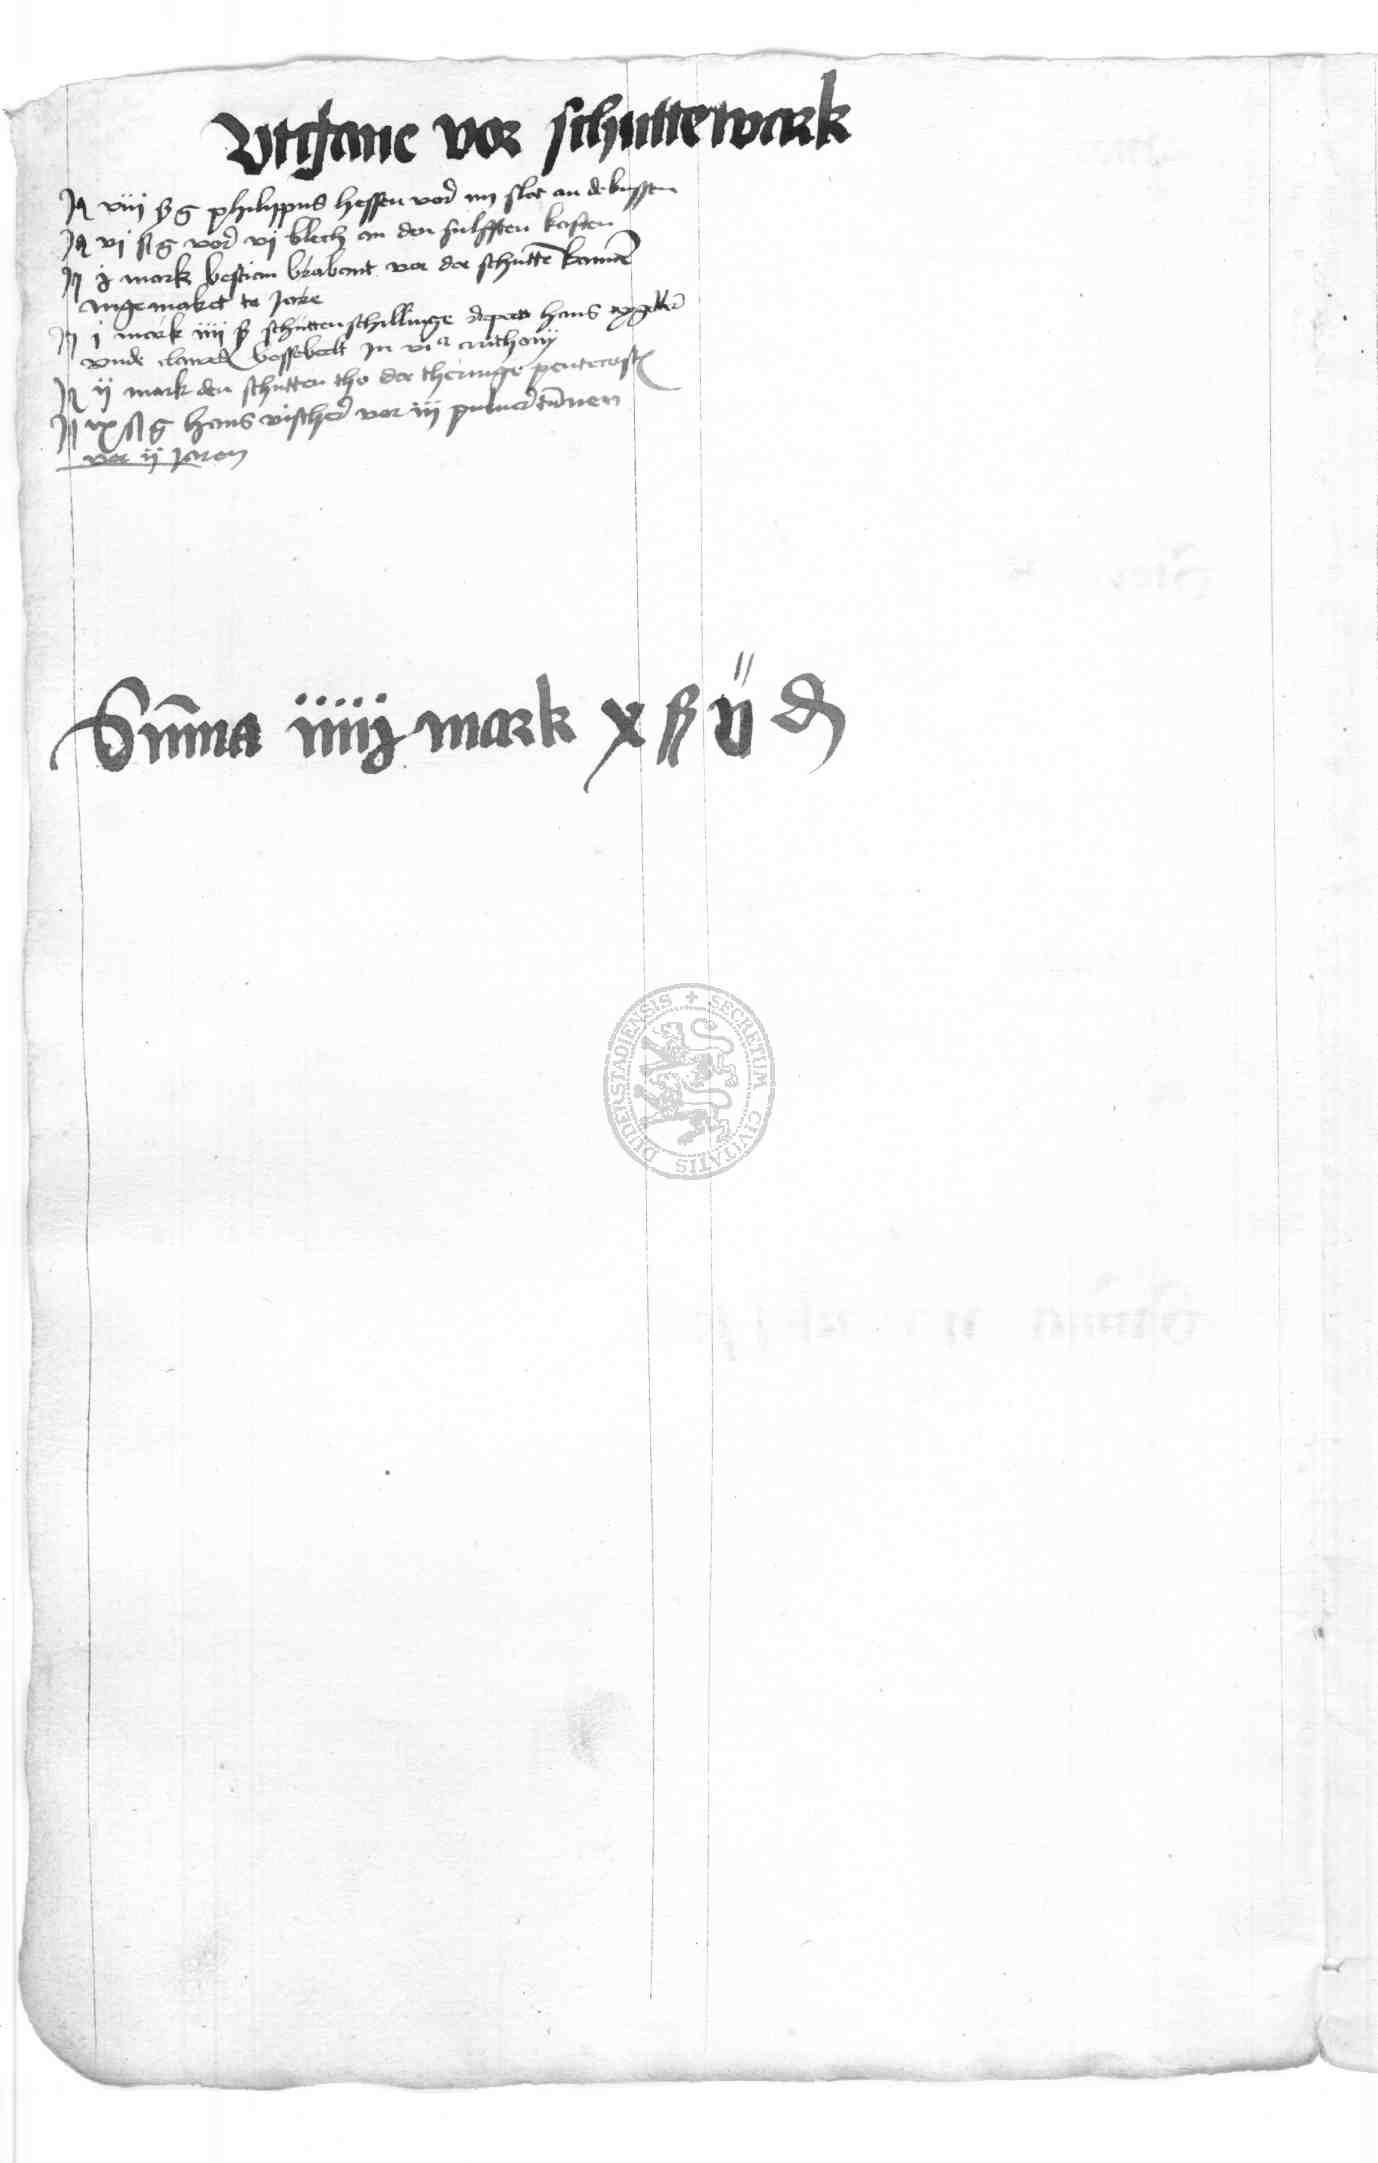 Vtgfane vor schuttewark
It viij ß g philippus hessen vor iiij slot an de bussen
It vj ß g vor vj blech an den sulfften kasten
It j mark bestian brabant vor der schutte kamer
ingemaket to jare
It j mark iiij ß schuttenschillinge Hans
vnde clawes bossebelt in vi anthonij
It ij mark den schutten tho der theringe pentecost
It ix ß g Hans vischer vor iij puluertunnen
vor ij jaren
Summa iiiij mark x ß ij d
SECRETUM CIVITATIS DUDERSTADIENSIS